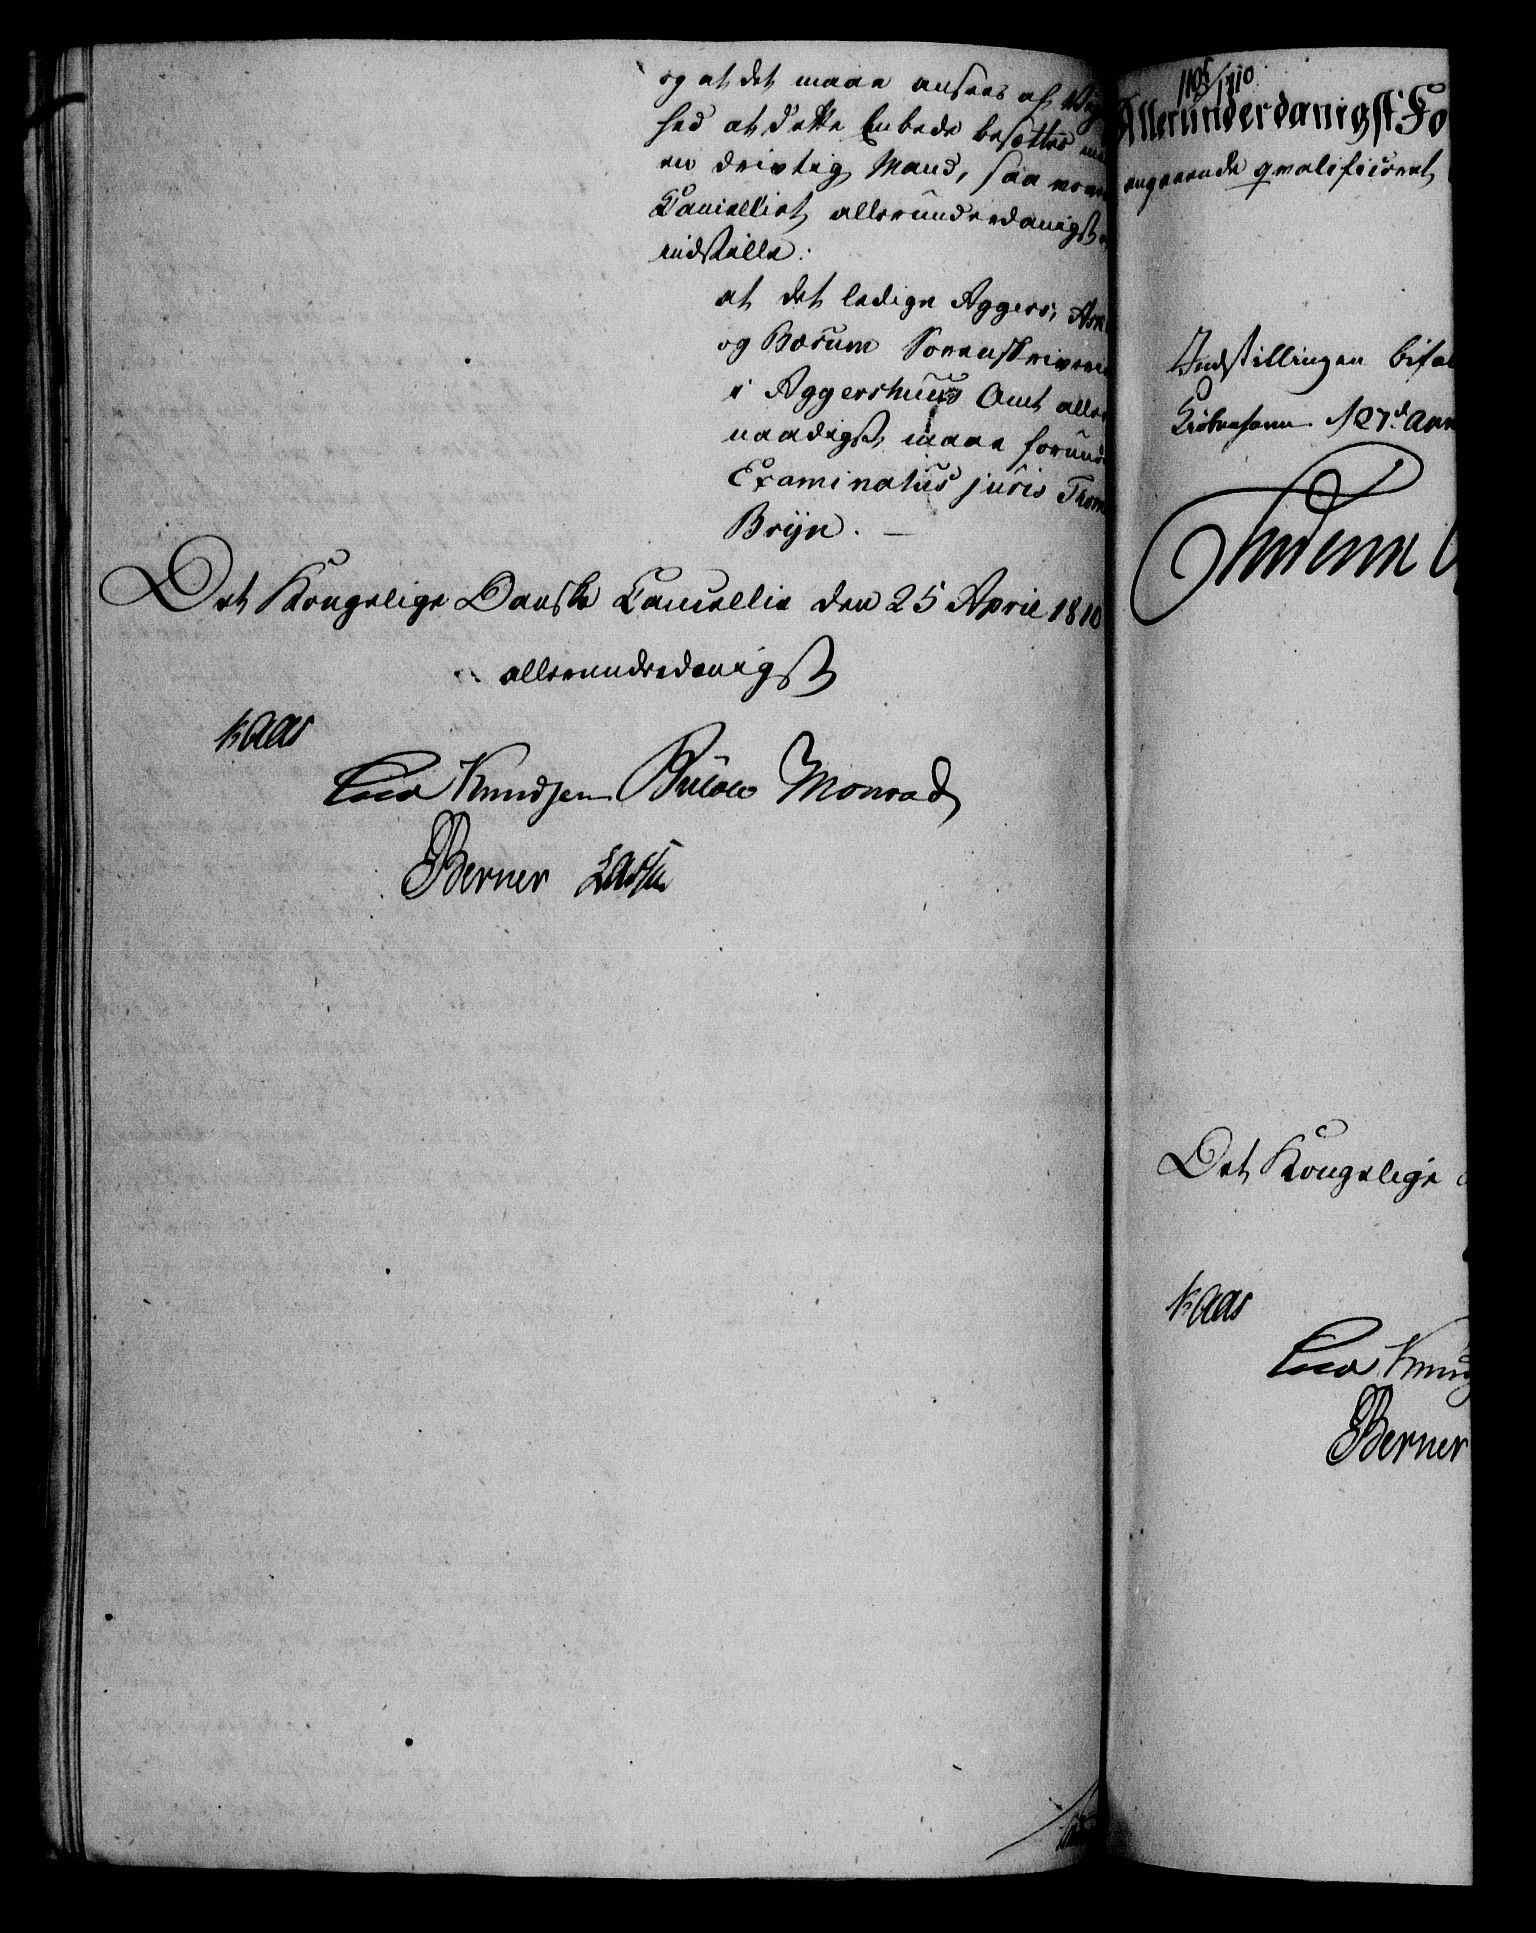 og at det maae ansees af Vig
hed at dette Embede besættes me
en drivtig Mand, saa
Cancelliet allerunderdanigst
indstille:
at det ledige Aggers, Ask
og Bærum Sorenskriverie
i Aggershuus Amt aller
naadigst maae forund
Examinatus juris Thom
Bryn. —
Det Kongelige Danske Cancellie den 25 April 1810
allerunderdanigst
Kaas
Cold Knudsen Bülow Monrad
Berner Lassen
1105/1810
Allerunderdanigst Fo
angaaende qvalificeret
Indstillingen bifal
Kiøbenhavn d 27d. Apr
Frederik
Det Kongelige
Kaas
Cold Knud
Berner